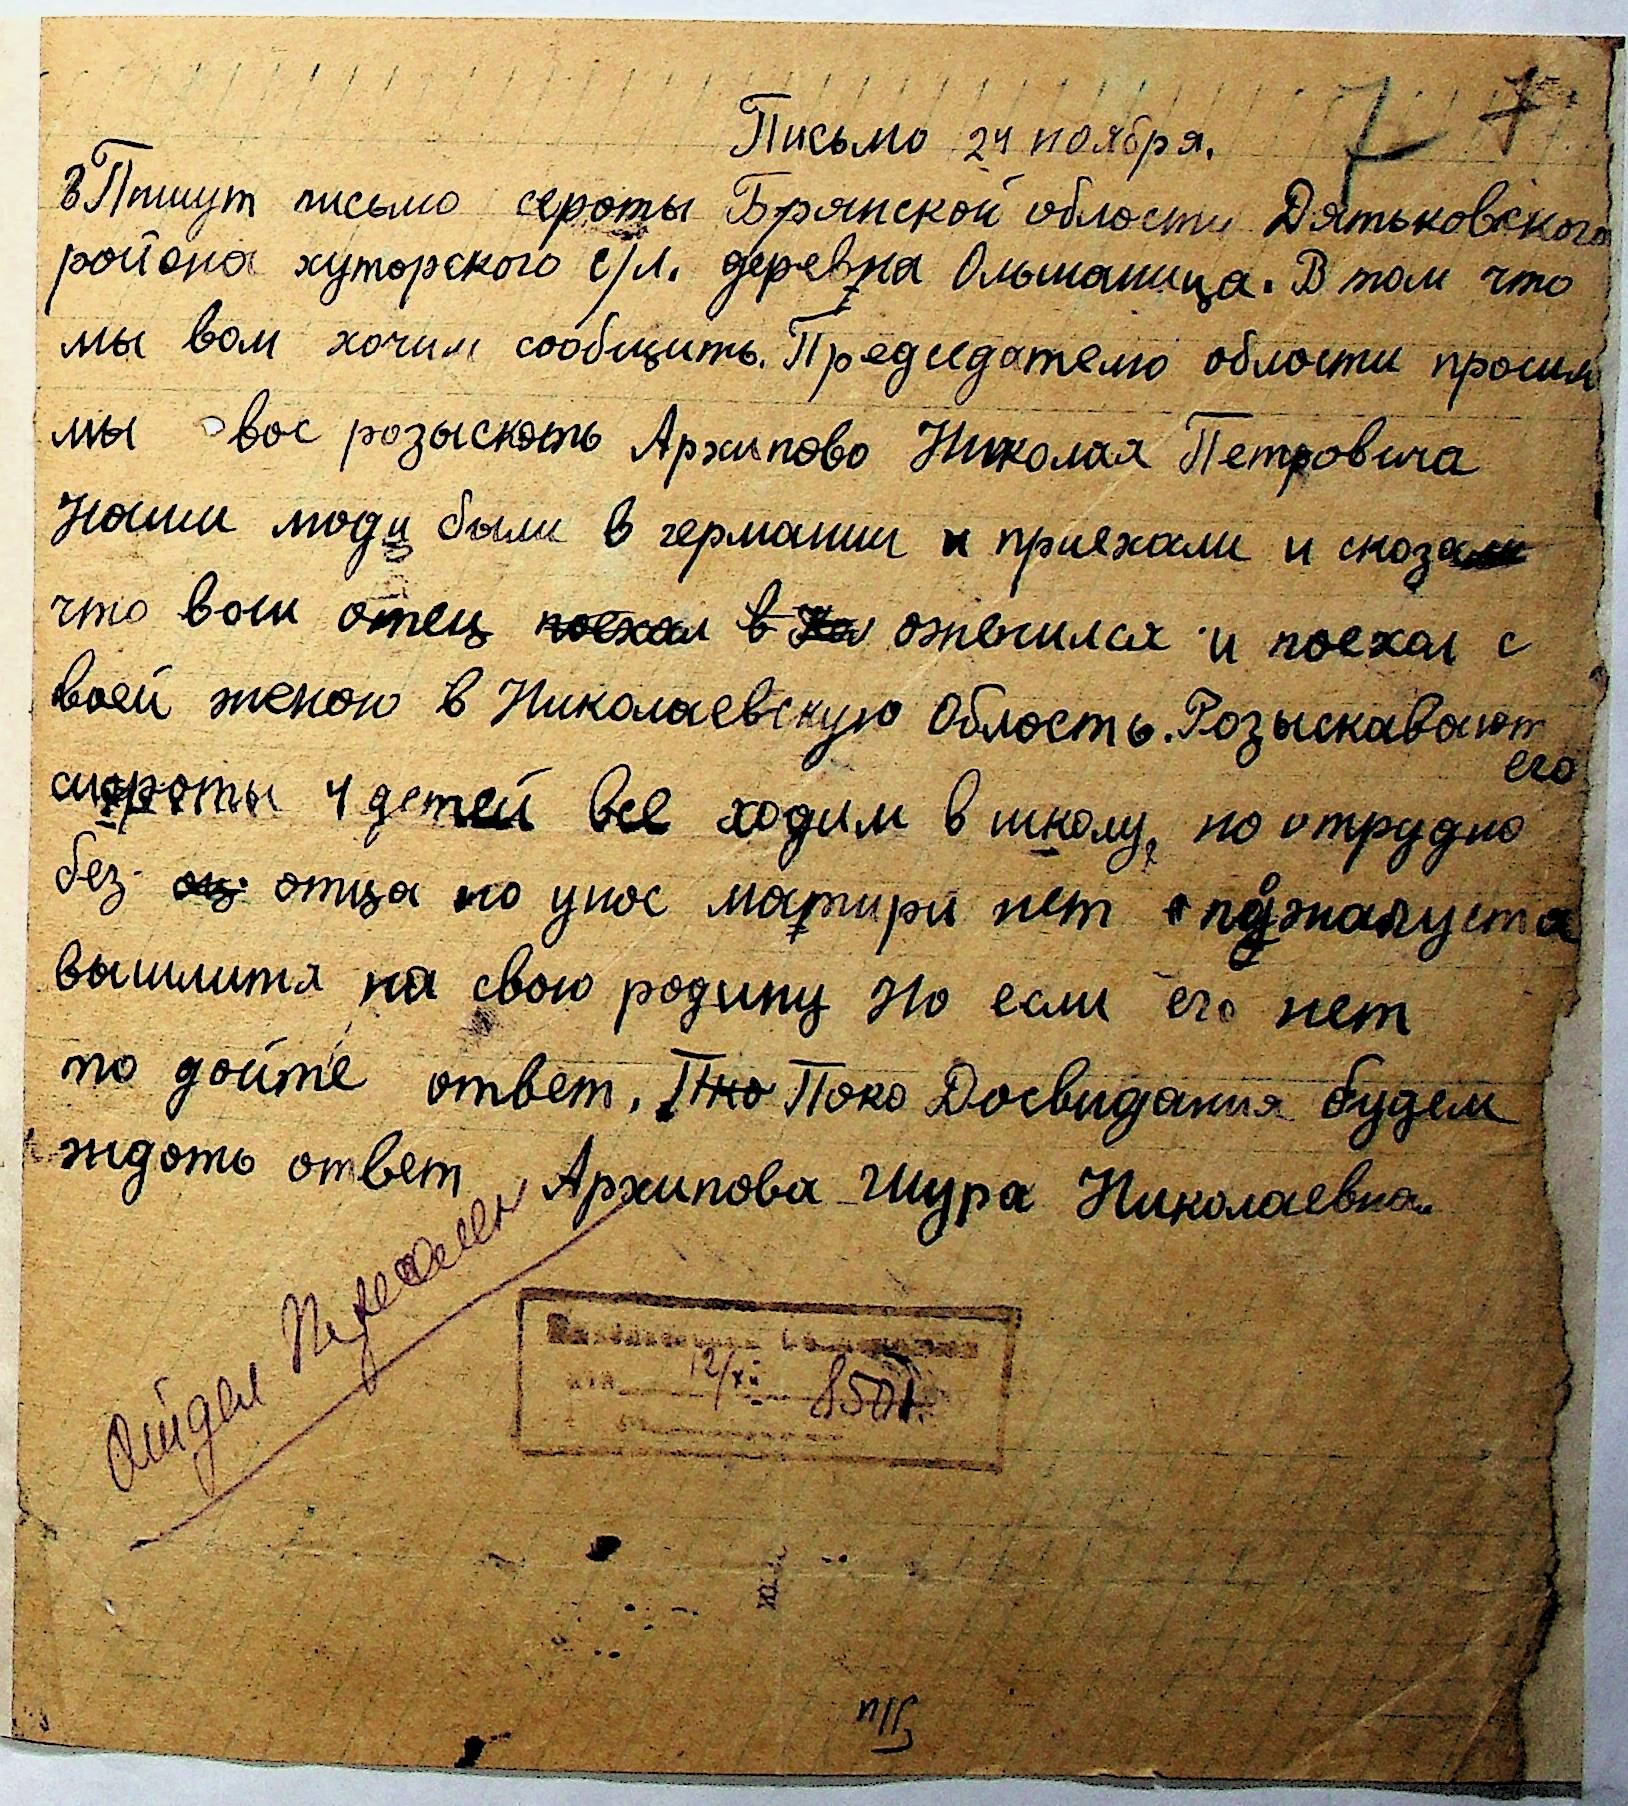 7 7
Письмо 24 ноября.
Ппишут письмо сероты Брянской области Дятьковского
района хуторского с/л. деревна Ольшаница. В том что
мы вам хочим сообщить. Председателю области просим
мы вас розыскать Архипова Николая Петровича
Наши люди были в германии и приехали и сказали
что ваш отец поехал в ожинился и поехал с
воей женою в Николаевскую Область. Розыскавают
его
сироты 4 детей все ходим в школу, но отрудно
без отца но унас матири нет пожалуста
вышлитя на свою родину Но если его нет
то дайте ответ. Пока Досвидания будем
ждать ответ Архипова Шура Николаевна.
Переселен
12/XII 8501.